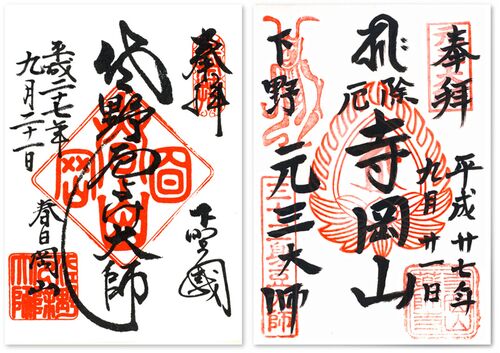 奉拝
下野國
佐野厄除大師
春日岡山
平成二十七年
九月二十一日
奉拝
平成廿七年
九月廿一日
厄除
寺岡山
下野
元三大師